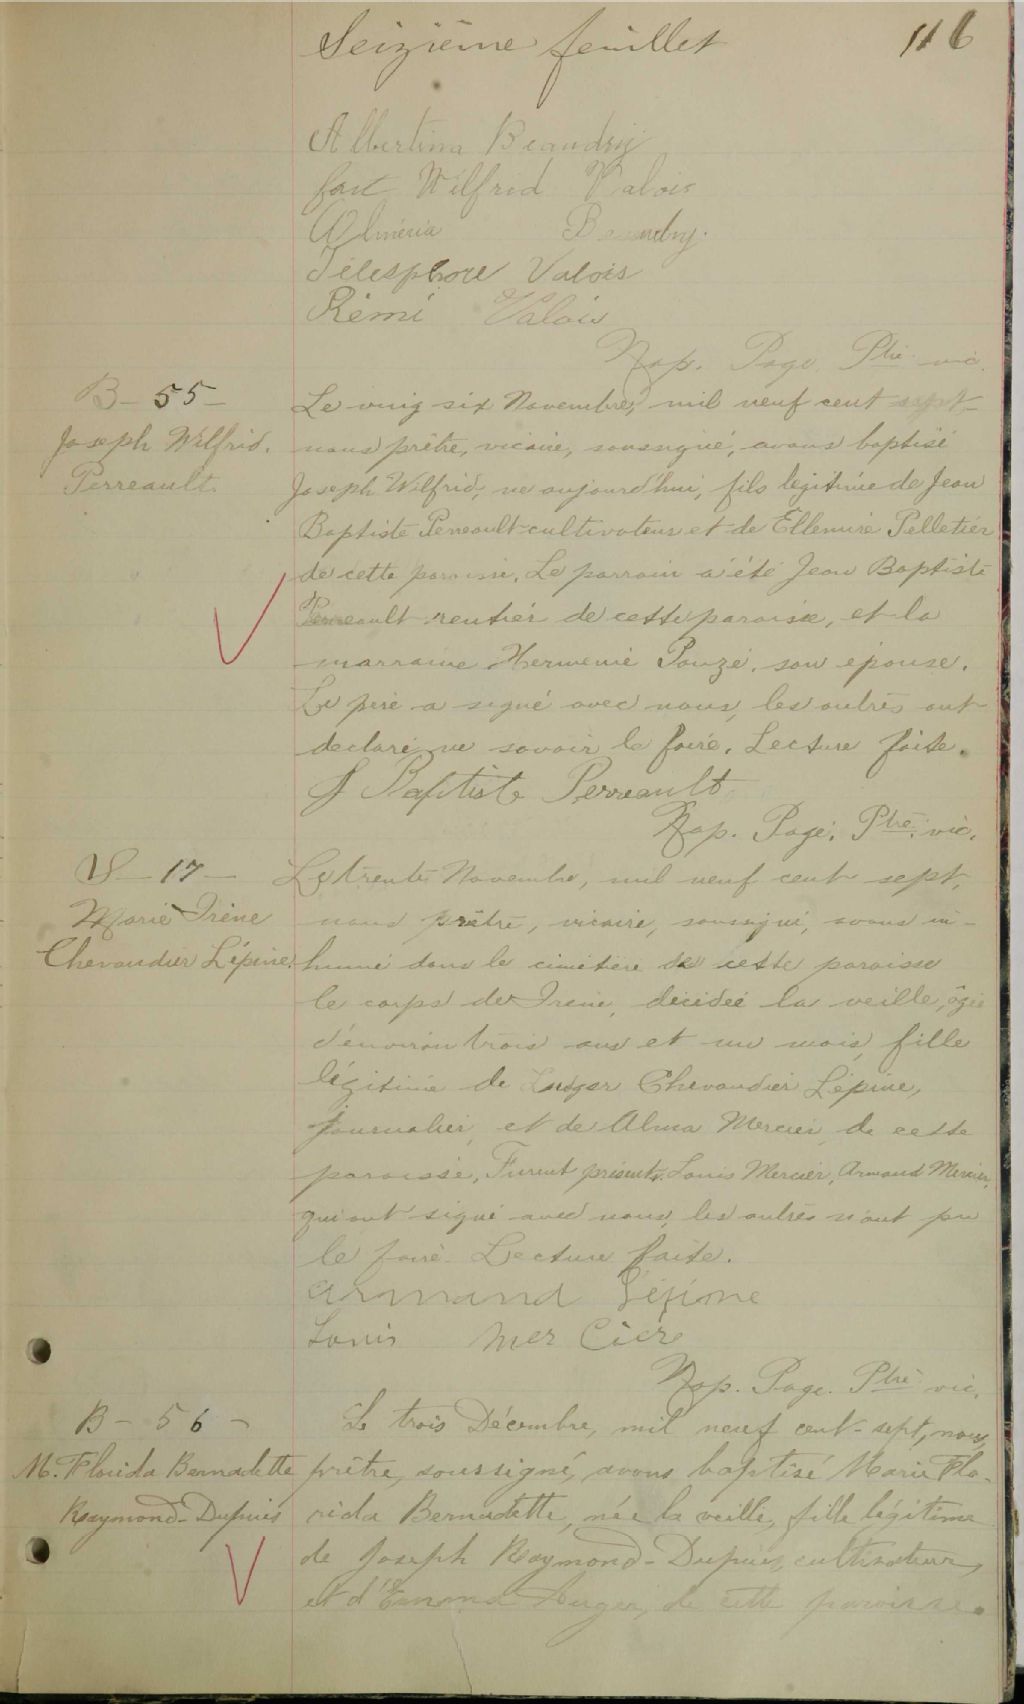 Seizième feuillet 116
Albertina Beaudry
fait Wilfrid Valois
Alméria Beaudry.
Télesphore Valois
Rémi Valois
Nap. Page. Ptre vic.
B – 55 –
Joseph Wilfrid.
Perreault.
Le ving six Novembre, mil neuf cent sept
nous prêtre, vicaire, soussigné, avons baptisé
Joseph Wilfrid, né aujourd'hui, fils légitime de Jean
Baptiste Perreault cultivateur et de Pelletier
de cette paroisse. Le parrain a été Jean Baptiste
Perreault rentier de cette paroisse, et la
marraine Hermenie Pouzé, son épouse.
Le père a signé avec nous, les autres ont
déclaré ne savoir le faire. Lecture faite.
J Baptiste Perreault
Nap. Page. Ptre. vic.
S – 17 –
Marie Irène
Chevaudier Lépine.
Le trente Novembre, mil neuf cent sept,
nous prêtre, vicaire, soussigné, avons in-
humé dans le cimetière de cette paroisse
le corps de Irène, décédée la veille, âgée
d'environ trois ans et un mois, fille
légitime de Ludger Chevaudier Lépine,
journalier, et de Alma Mercier, de cette
paroisse. Furent présents, Louis Mercier, Armand Mercier,
qui ont signé avec nous, les autres n'ont pu
le faire. Lecture faite.
Armand Lépine
Louis Mer Cière
Nap. Page. Ptre vic.
B – 56 –
M. Florida Bernadette
Raymond-Dupuis
Le trois Décembre, mil neuf cent-sept, nous,
prêtre, soussigné, avons baptisé Marie Flo-
rida Bernadette, née la veille, fille légitime
de Joseph Raymond-Dupuis, cultivateur,
et d'Emma Auger, de cette paroisse.